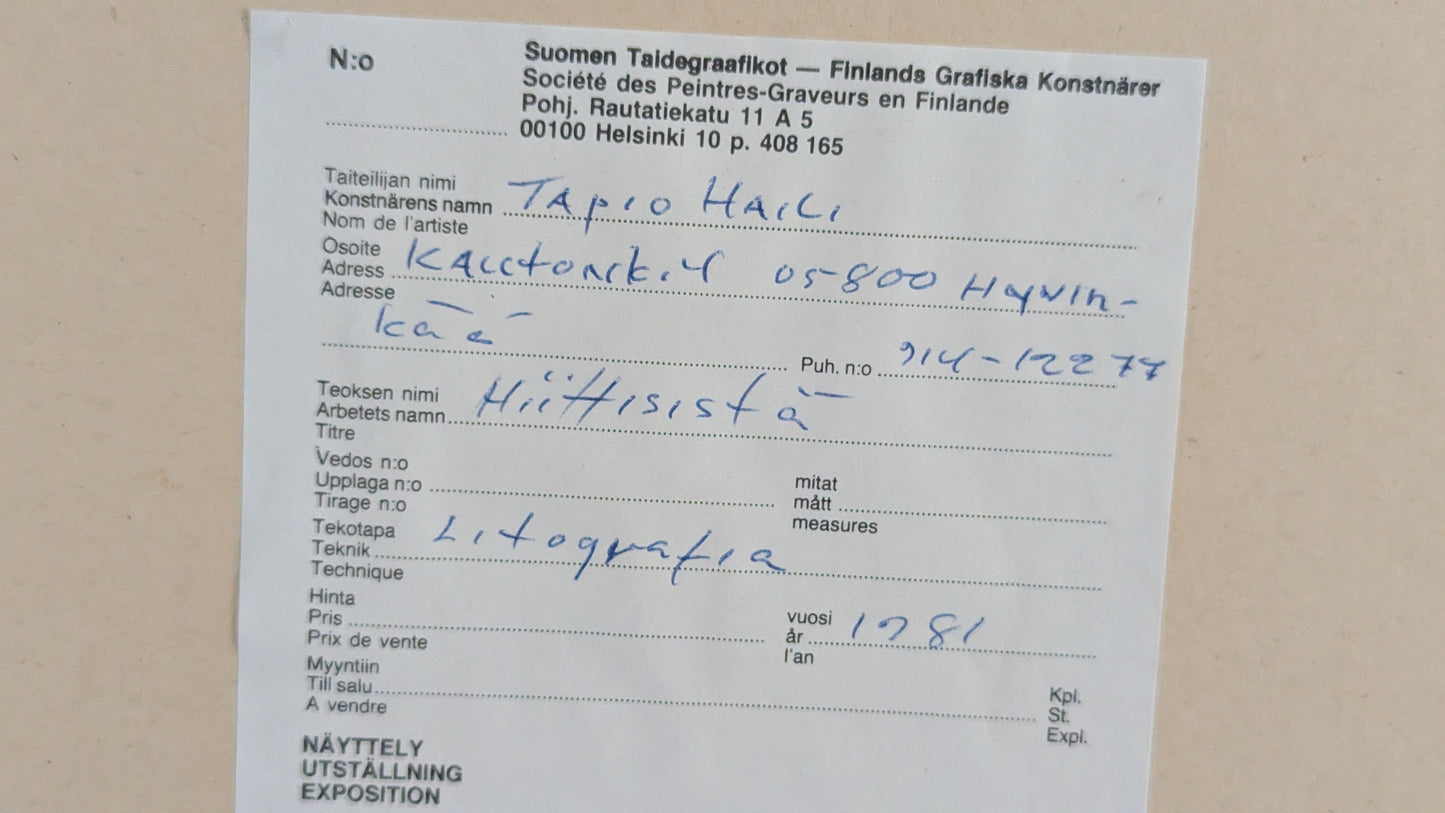 N:o
Suomen Taidegraafikot — Finlands Grafiska Konstnärer
Société des Peintres-Graveurs en Finlande
Pohj. Rautatiekatu 11 A 5
00100 Helsinki 10 p. 408 165
Taiteilijan nimi
Konstnärens namn Tapio Haili
Nom de l'artiste
Osoite
Adress 05800 Hyvin-
Adresse
kää
Puh. n:o 914-12277
Teoksen nimi
Arbetets namn Hiittisistä
Titre
Vedos n:o
Upplaga n:o
Tirage n:o
mitat
mått
measures
Tekotapa
Teknik Litografia
Technique
Hinta
Pris
Prix de vente
vuosi
år 1981
l'an
Myyntiin
Till salu
A vendre
Kpl.
St.
Expl.
NÄYTTELY
UTSTÄLLNING
EXPOSITION